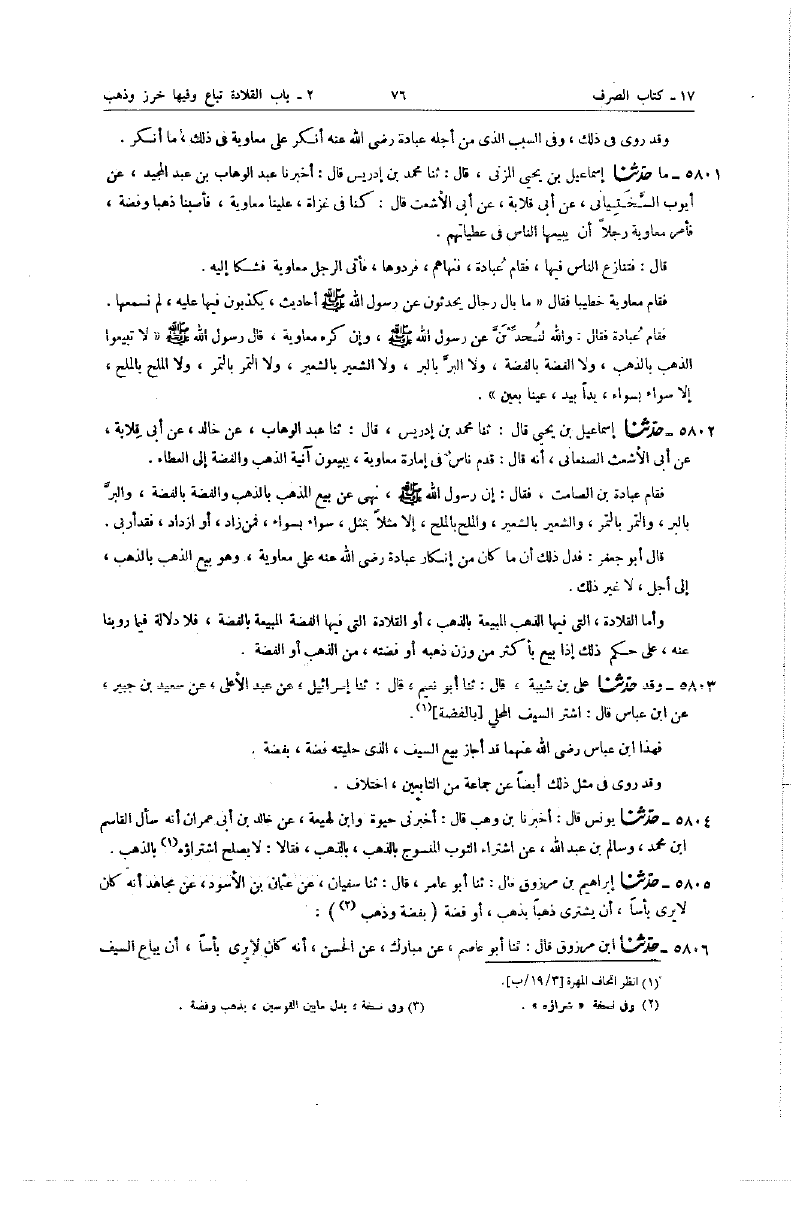 ١٧ - كتاب الصرف ٧٦ ٢ - باب القلادة تباع وفيها خرز وذهب
وقد روى فى ذلك ، وفى السبب الذى من أجله عبادة رضى الله عنه أنكر على معاوية فى ذلك ، ما أنكر .
٥٨٠١ - ما حدثنا إسماعيل بن يحيى المزنى ، قال : ثنا محمد بن إدريس قال : أخبرنا عبد الوهاب بن عبد المجيد ، عن
أيوب السَّخْتِيانى ، عن أبى قلابة ، عن أبى الأشعث قال : كنا فى غزاة ، علينا معاوية ، فأصبنا ذهبا وفضة ،
فأمر معاوية رجلاً أن يبيعها الناس فى عطياتهم .
قال : فتنازع الناس فيها ، فقام عُبادة ، فنهاهم ، فردوها ، فأتى الرجل معاوية فشكا إليه .
فقام معاوية خطيبا فقال « ما بال رجال يحدثون عن رسول الله ﷺ أحاديث ، يكذبون فيها عليه ، لم نسمعها .
فقام عُبادة فقال : والله لنُحدِّثَنَّ عن رسول الله ﷺ ، وإن كره معاوية ، قال رسول الله ﷺ « لا تبيعوا
الذهب بالذهب ، ولا الفضة بالفضة ، ولا البرَّ بالبر ، ولا الشعير بالشعير ، ولا التمر بالتمر ، ولا الملح بالملح ،
إلا سواء بسواء ، يداً بيد ، عينا بعين » .
٥٨٠٢ - حدثنا إسماعيل بن يحيى قال : ثنا محمد بن إدريس ، قال : ثنا عبد الوهاب ، عن خالد ، عن أبى قِلابة ،
عن أبى الأشعث الصنعانى ، أنه قال : قدم ناس فى إمارة معاوية ، يبيعون آنية الذهب والفضة إلى العطاء .
فقام عبادة بن الصامت ، فقال : إن رسول الله ﷺ ، نهى عن بيع الذهب بالذهب والفضة بالفضة ، والبرَّ
بالبر ، والتمر بالتمر ، والشعير بالشعير ، والملح بالملح ، إلا مثلاً بمثل ، سواء بسواء ، فمن زاد ، أو ازداد ، فقد أربى .
قال أبو جعفر : فدل ذلك أن ما كان من إنكار عبادة رضى الله عنه على معاوية ، وهو بيع الذهب بالذهب ،
إلى أجل ، لا غير ذلك .
وأما القلادة ، التى فيها الذهب المبيعة بالذهب ، أو القلادة التى فيها الفضة المبيعة بالفضة ، فلا دلالة فيما روينا
عنه ، على حكم ذلك إذا بيع بأكثر من وزن ذهبه أو فضته ، من الذهب أو الفضة .
٥٨٠٣ - وقد حدثنا على بن شيبة ، قال : ثنا أبو نعيم ، قال : ثنا إسرائيل ، عن عبد الأعلى ، عن سعيد بن جبير ،
عن ابن عباس قال : اشتر السيف المحلى [بالفضة](١).
فهذا ابن عباس رضى الله عنهما قد أجاز بيع السيف ، الذى حليته فضة ، بفضة .
وقد روى فى مثل ذلك أيضاً عن جماعة من التابعين ، اختلاف .
٥٨٠٤ - حدثنا يونس قال : أخبرنا بن وهب قال : أخبرنى حيوة وابن لهيعة ، عن خالد بن أبى عمران أنه سأل القاسم
ابن محمد ، وسالم بن عبد الله ، عن اشتراء الثوب المنسوج بالذهب ، بالذهب ، فقالا : لا يصلح اشتراؤه(١) بالذهب .
٥٨٠٥ - حدثنا إبراهيم بن مرزوق قال : ثنا أبو عامر ، قال : ثنا سفيان ، عن عثمان بن الأسود ، عن مجاهد أنه كان
لا يرى بأساً ، أن يشترى ذهباً بذهب ، أو فضة ( بفضة وذهب (٢) ) :
٥٨٠٦ - حدثنا ابن مرزوق قال : ثنا أبو عاصم ، عن مبارك ، عن الحسن ، أنه كان لا يرى بأساً ، أن يباع السيف
(١) انظر اتحاف المهرة [٣/١٩/ب].
(٢) وفى نسخة « شراؤه » . (٣) وفى نسخة ، بدل مابين القوسين ، بذهب وفضة .